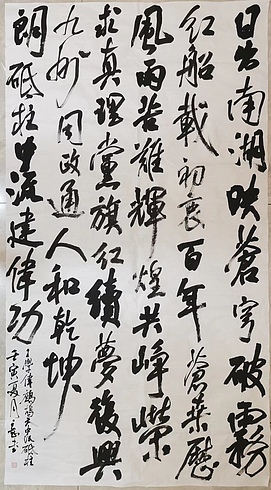 日出南湖映蒼穹破霧
紅船載初衷百年蒼桑歷
風雨苦難輝煌共崢嶸
求真理黨旗紅續夢復興
九州同政通人和乾坤
朗砥柱中流建偉功
學偉鷓鴣天中流砥柱
壬寅夏月書